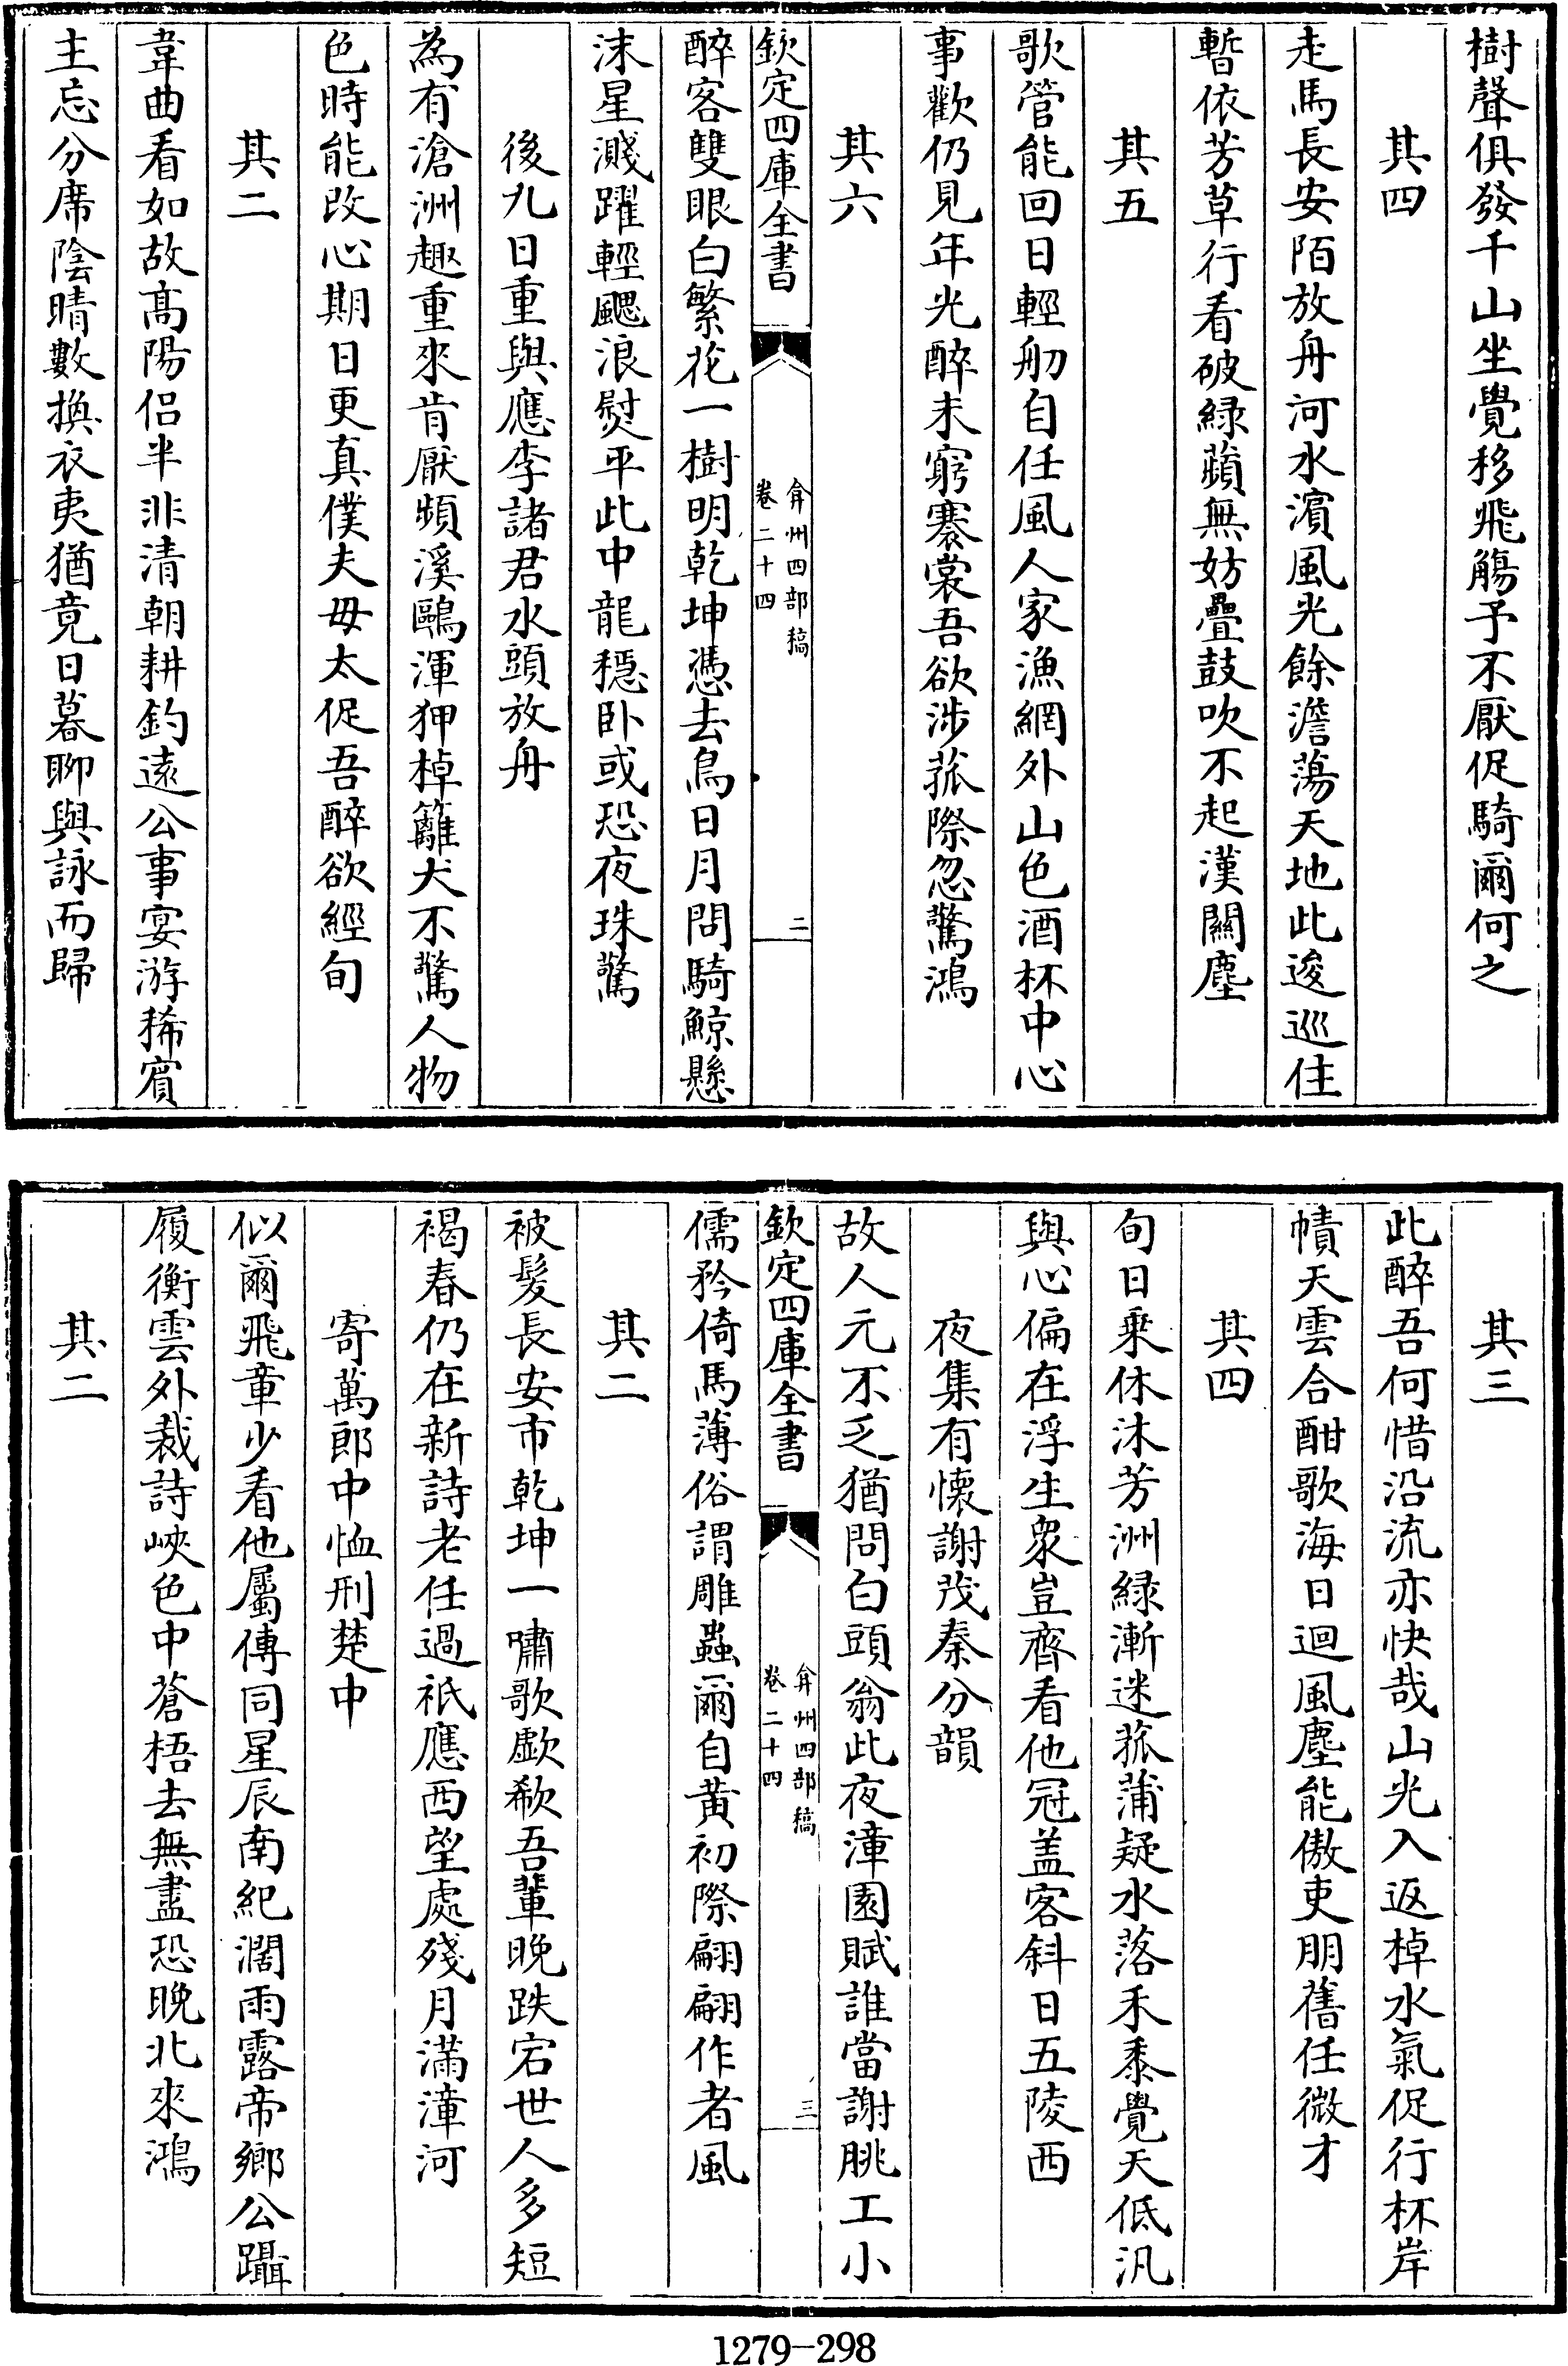 樹聲俱發千山坐覺移飛觴予不厭促騎爾何之
其四
走馬長安陌放舟河水濱風光餘澹蕩天地此逡巡住
暫依芳草行看破緑蘋無妨疊鼓吹不起漢關塵
其五
歌管能回日輕舠自任風人家漁網外山色酒杯中心
事歡仍見年光醉未窮褰裳吾欲涉菰際忽驚鴻
其六
欽定四庫全書
弇州四部稿
卷二十四
二
醉客雙眼白繁花一樹明乾坤憑去鳥日月問騎鯨懸
沫星濺躍輕颸浪熨平此中龍穩卧或恐夜珠驚
後九日重與應李諸君水頭放舟
為有滄洲趣重來肯厭頻溪鷗渾狎棹籬犬不驚人物
色時能改心期日更真僕夫毋太促吾醉欲經旬
其二
韋曲看如故髙陽侣半非清朝耕釣逺公事宴游稀賔
主忘分席陰晴數換衣夷猶竟日暮聊與詠而歸
其三
此醉吾何惜沿流亦快哉山光入返棹水氣促行杯岸
幘天雲合酣歌海日迴風塵能傲吏朋舊任微才
其四
旬日乗休沐芳洲緑漸迷菰蒲疑水落禾黍覺天低汎
與心偏在浮生衆豈齊看他冠盖客斜日五陵西
夜集有懐謝茂秦分韻
故人元不乏猶問白頭翁此夜漳園賦誰當謝朓工小
欽定四庫全書
弇州四部稿
卷二十四
三
儒矜倚馬薄俗謂雕蟲爾自黄初際翩翩作者風
其二
被髪長安市乾坤一嘯歌歔欷吾輩晚跌宕世人多短
褐春仍在新詩老任過祇應西望處殘月滿漳河
寄萬郎中恤刑楚中
似爾飛章少看他屬傳同星辰南紀濶雨露帝鄉公躡
履衡雲外裁詩峽色中蒼梧去無盡恐晚北來鴻
其二
1279-298